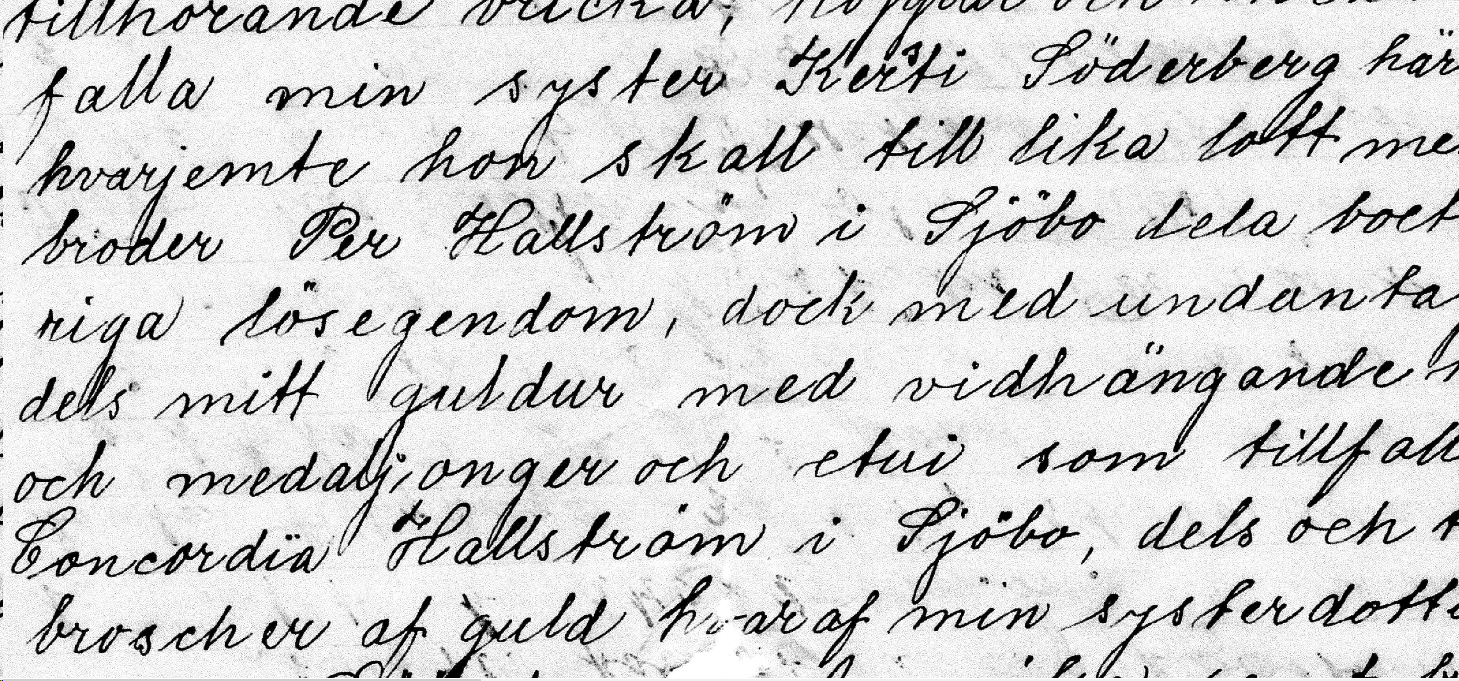 tillhörande bricka, koppar och
falla min syster Kersti Söderberg här
hvarjemte hon skall till lika lott me
broder Per Hallström i Sjöbo dela boet
riga lösegendom, dock med undanta
dels mitt guldur med vidhängande
och medaljonger och etui som tillfall
Concordia Hallström i Sjöbo, dels och
broscher af guld hvaraf min systerdotte